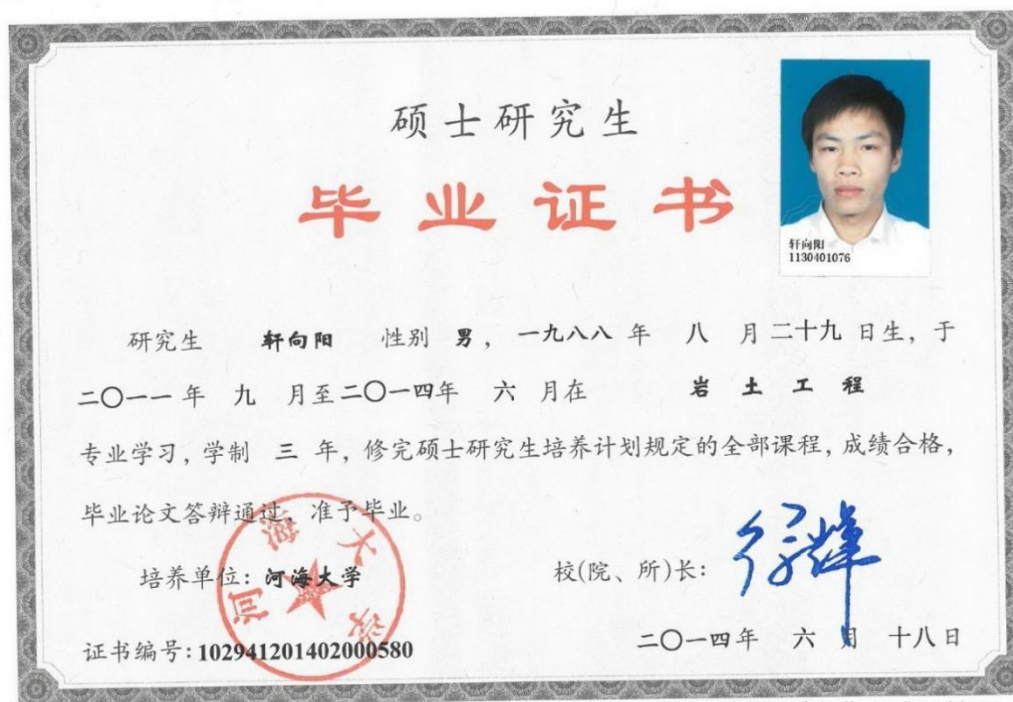 硕士研究生
毕业证书
轩向阳
1130401076
研究生 轩向阳 性别 男，一九八八 年 八 月二十九 日生，于
二〇一一 年 九 月至二〇一四年 六 月在 岩土工程
专业学习，学制 三 年，修完硕士研究生培养计划规定的全部课程，成绩合格，
毕业论文答辩通过，准予毕业。
培养单位：河海大学
校(院、所)长：
河海大学
证书编号：102941201402000580
二〇一四年 六 月 十八日